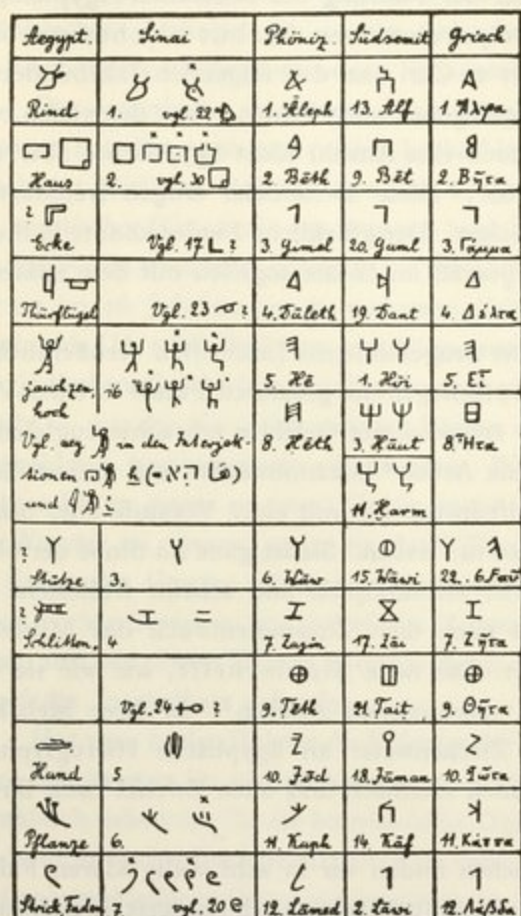 Aegypt. Sinai Phöniz. Südsemit Griech
Rind 1. vgl. 22 1. Āleph 13. Alf 1. Ἄλφα
Haus 2. vgl. 30 2. Bēth 9. Bēt 2. Βῆτα
? Ecke Vgl. 17 ? 3. Gimel 20. Guml 3. Γάμμα
Thürflügel Vgl. 23 ? 4. Dāleth 19. Dant 4. Δέλτα
jauchzen, 16 5. Hē 1. Hōi 5. Εἶ
hoch
Vgl. aeg in den Interjek- 8. Hēth 3. Haut 8. Ἦτα
tionen
und
11. Harm
? Stütze 3. 6. Wāw 15. Wāwi 22. 6. Faῦ
? Schlitten. 4 7. Zajin 17. Zai 7. Ζῆτα
Vgl. 24 ? 9. Tēth 21. Tait 9. Θῆτα
Hand 5 10. Jōd 18. Jaman 10. Ἰῶτα
Pflanze 6. 11. Kaph 14. Kāf 11. Κάππα
Strick Faden 7 vgl. 20 12. Lāmed 2. Lāwi 12. Λάβδα